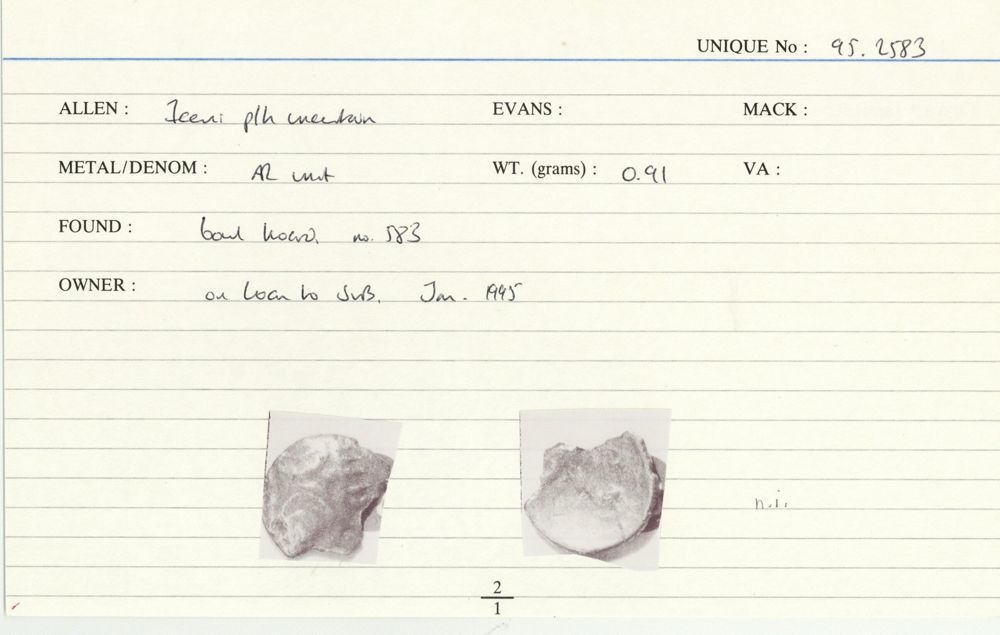 UNIQUE No : 95. 2583
ALLEN : Iceni plh uncertain EVANS : MACK :
METAL/DENOM : AR unit WT. (grams) : 0.91 VA :
FOUND : bowl hoard. no. 583
OWNER : on loan to SVB. Jan. 1995
n.i.
2
1